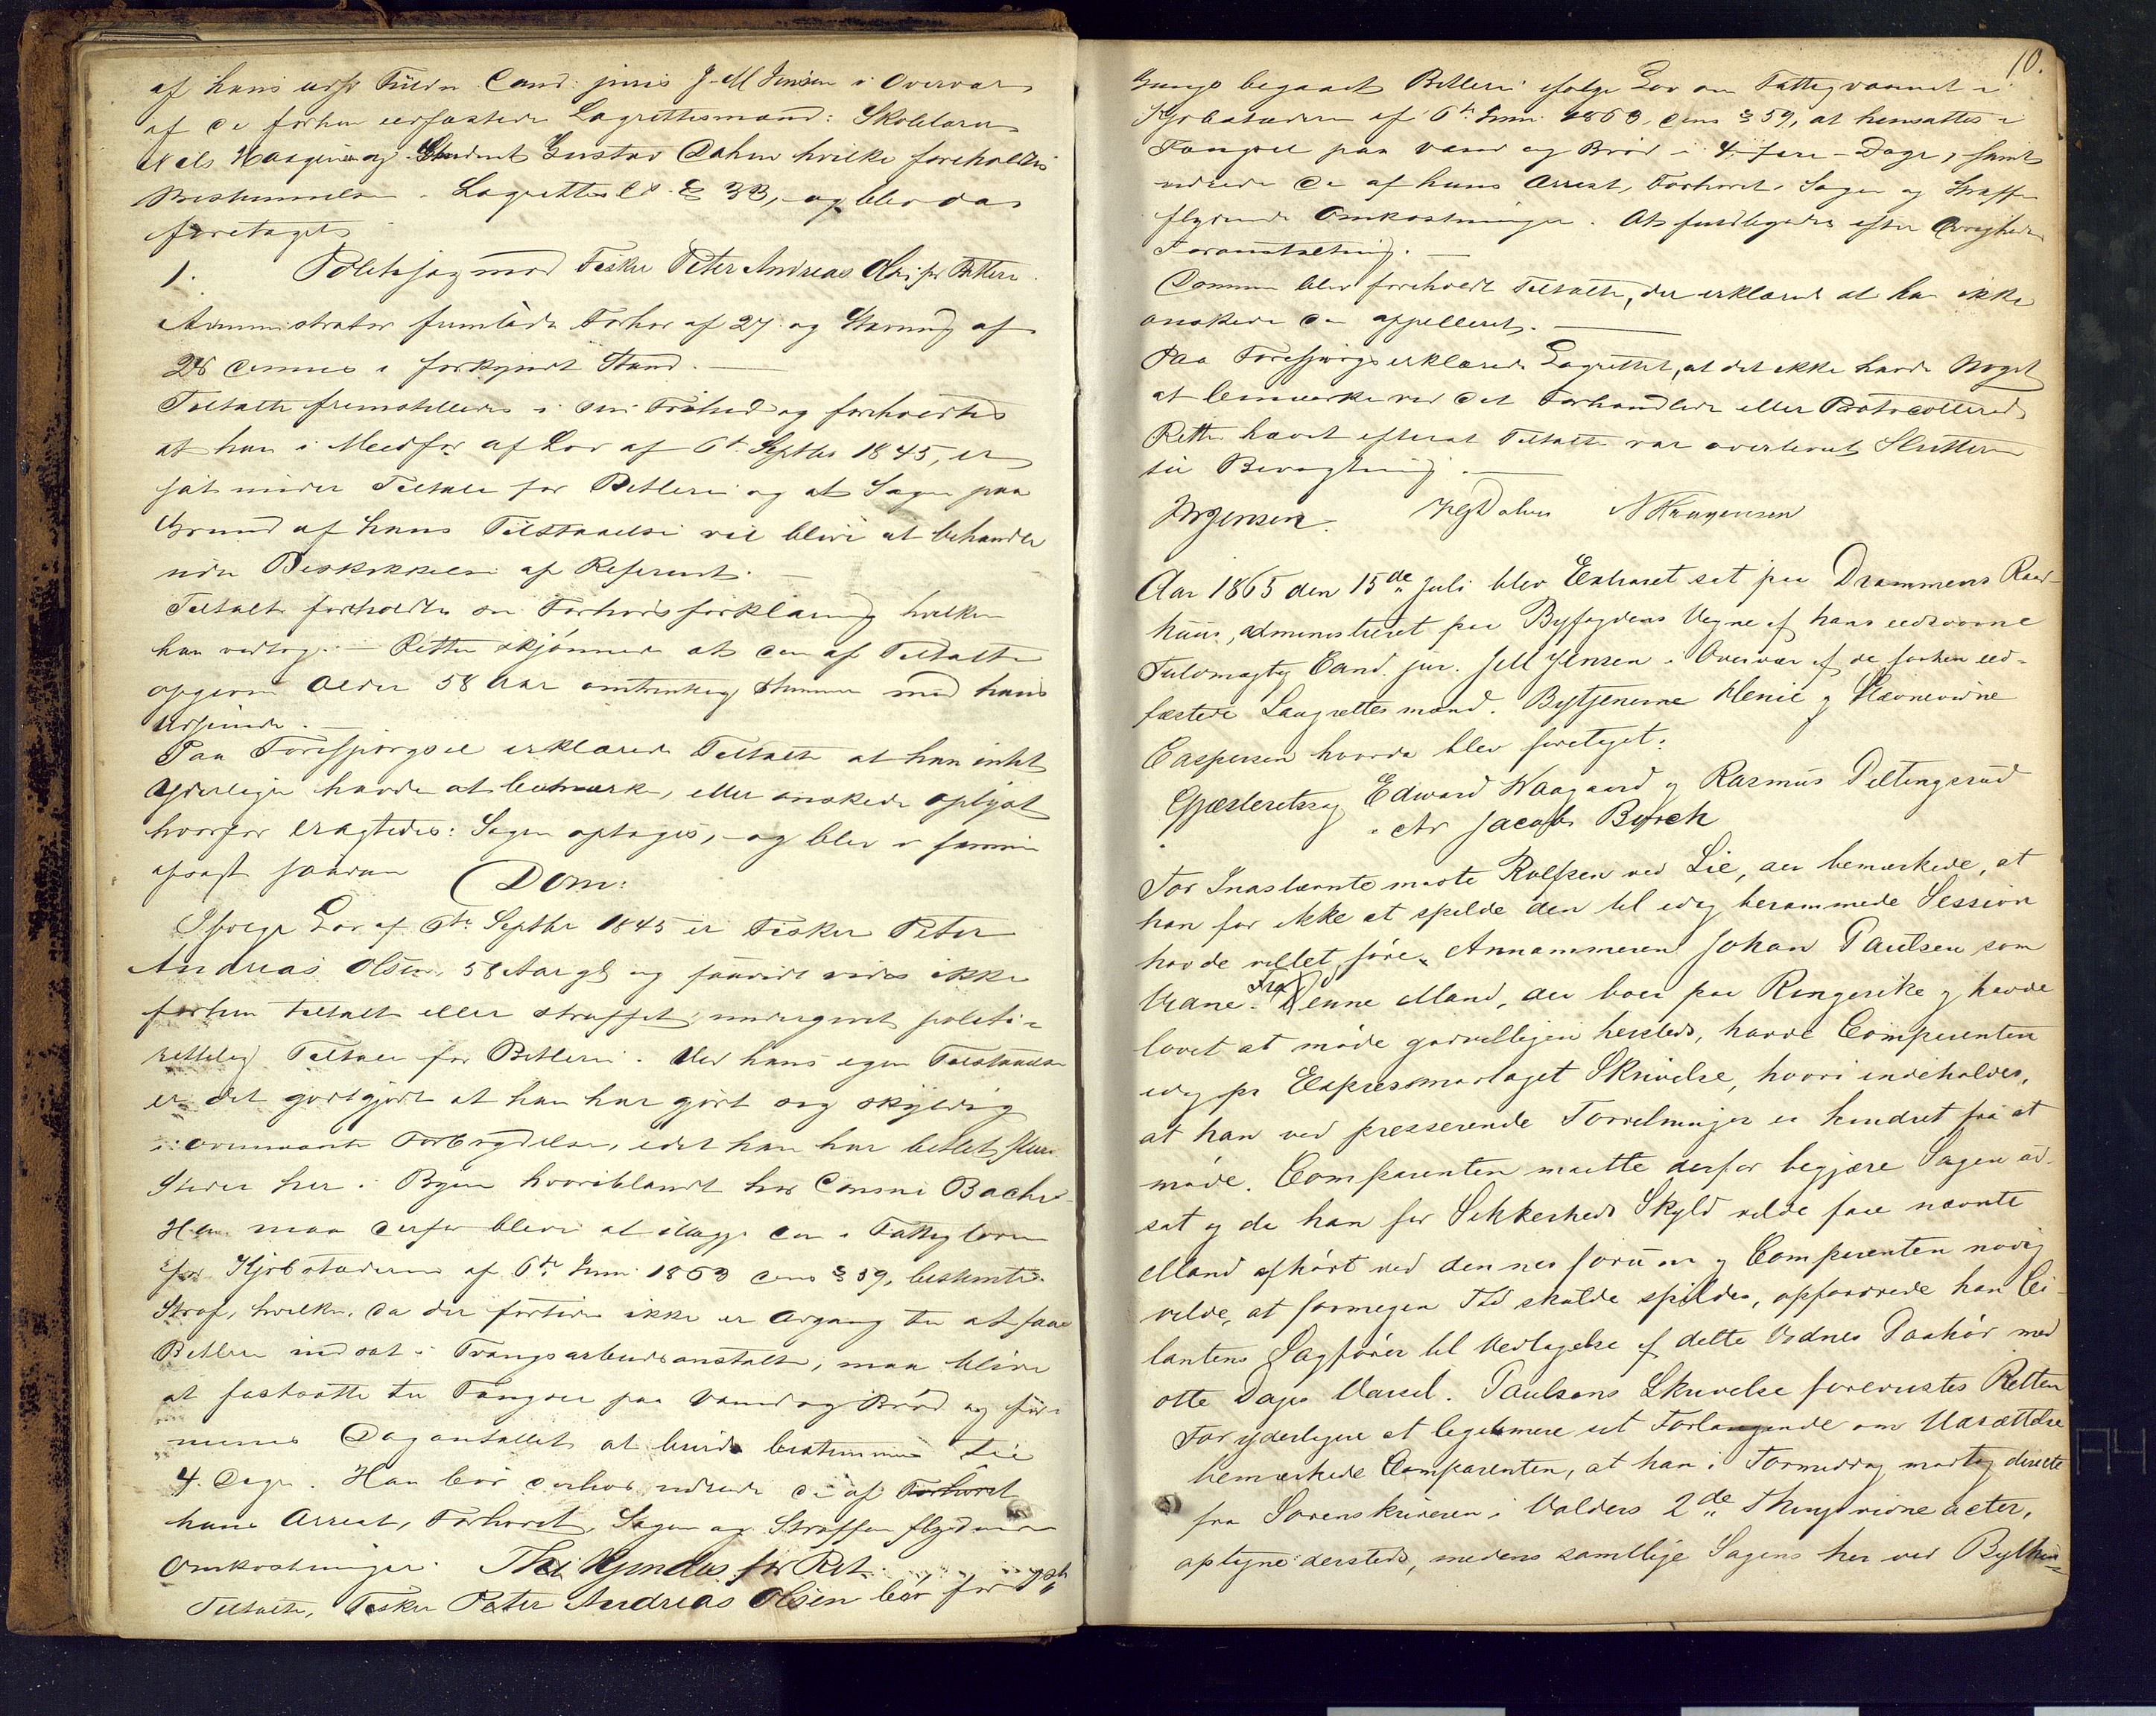 af hans edsv Fuldm Cand. juris J. M Jensen i Overvær
af de forhen eedfæstede Lagrettesmænd: Skolelærer
Nils Haagensen og Student Gustav Dahm hvilke foreholdtes
Bestemmelsen i Lagrettesl. § 33, og blev da
foretaget
1. Politisag mod Fisker Peter Andreas Olsen for Betleri
Administrator fremlagde Forhør af 27 og Stevning af
28 dennes i forkyndt Stand. —
Tiltalte fremstilledes i sin Frihed og foreholdtes
at han i Medfør af Lov af 6te Septbr 1845, er
sat under Tiltale for Betleri og at Sagen paa
Grund af hans Tilstaaelse vil blive at behandle
uden Beskikkelse af Referent. —
Tiltalte foreholdtes sin Forhørsforklaring hvilken
han vedtog. — Retten skjønnede at den af Tiltalte
opgivne Alder 58 Aar omtrentlig stemmer med hans
Udseende. —
Paa Forespørgsel erklærede Tiltalte at han intet
yderligere havde at bemærke, eller ønskede oplyst
hvorfor eragtedes: Sagen optages, og blev i samme
afsagt saadan Dom:
Ifølge Lov af 6te Septbr 1845 er Fisker Peter
Andreas Olsen, 58 Aar gl og saavidt vides ikke
forhen tiltalt eller straffet, undergivet politi-
retslig Tiltale for Betleri. Ved hans egen Tilstaaelse
er det godtgjort at han har gjort sig skyldig
i ovennævnte Forbrydelse, idet han har betlet flere
Steder her i Byen hvoriblandt hos Consul Bache.
Han maa derfor blive at ilægge den i Fattigloven
for Kjøbstæderne af 6te Juni 1863 dens § 59, bestemte
Straf, hvilken, da der fortiden ikke er Adgang til at faae
Betlere indsat i Tvangsarbeidsanstalt, maa blive
at fastsætte til Fængsel paa Vand og Brød og for-
menes Dagantallet at burde bestemmes til
4 Dage. Han bør derhos udrede de af Forhøret
hans Arrest, Forhøret, Sagen og Straffen flydende
Omkostninger. Thi Kjendes for Ret
Tiltalte, Fisker Peter Andreas Olsen bør for
10.
Gangs begaaet Betleri ifølge Lov om Fattigvæsenet i
Kjøbstæderne af 6te Juni 1863, dens § 59, at hensættes i
Fængsel paa Vand og Brød i 4 fire Dage, samt
udrede de af hans Arrest, Forhøret, Sagen og Straffen
flydende Omkostninger. At fuldbyrdes efter Øvrighedens
Foranstaltning. —
Dommen blev foreholdt Tiltalte, der erklærede at han ikke
ønskede den appelleret. —
Paa Forespørgsel erklærede Lagrettet, at det ikke havde Noget
at bemærke ved det Forhandlede eller Protocollerede
Retten hævet efterat Tiltalte var overleveret Slutteren
til Bevogtning. —
JMJensen. Dahm N Haagensen
Aar 1865 den 15de Juli blev Extraret sat paa Drammens Raad-
huus, administreret paa Byfogdens Vegne af hans eedsvorne
Fuldmægtig Cand. jur. J M Jensen i Overvær af de forhen eed-
fæstede Laugrettesmænd. Bytjenerne Henie og Stævnevidne
Caspersen hvorda blev foretaget:
Gjæsteretssag Edward Waagaard og Rasmus Peltengsrud
ctr Jacob Børch
For Indstævnte mødte Rolfsen ved Lie, der bemærkede, at
han for ikke at spilde den til idag berammede Session
havde villet føre Annammeren Johan Paulsen som
Vidne. Fra Denne Mand, der boer paa Ringerike og havde
lovet at møde godvilligen hersteds, havde Comparenten
idag pr Expres modtaget Skrivelse, hvori indeholdes,
at han ved presserende Forretninger er hindret fra at
møde. Comparenten maatte derfor begjære Sagen ud-
sat og da han for Sikkerheds Skyld vilde faae nævnte
Mand afhørt ved dennes forum og Comparenten nødig
vilde, at formegen Tid skulde spildes, opfordrede han Ci-
tantens Sagfører til Vedtagelse af dette Vidnes Paahør med
otte Dages Varsel. Paulsens Skrivelse forevistes Retten
For yderligere at legitimere sit Forlangende om Udsættelse
bemærkede Comparenten, at han i Formiddag modtog directe
fra Sorenskriveren i Valders 2de Thingsvidneacter,
optagne dersteds, medens samtlige Sagens her ved Bything